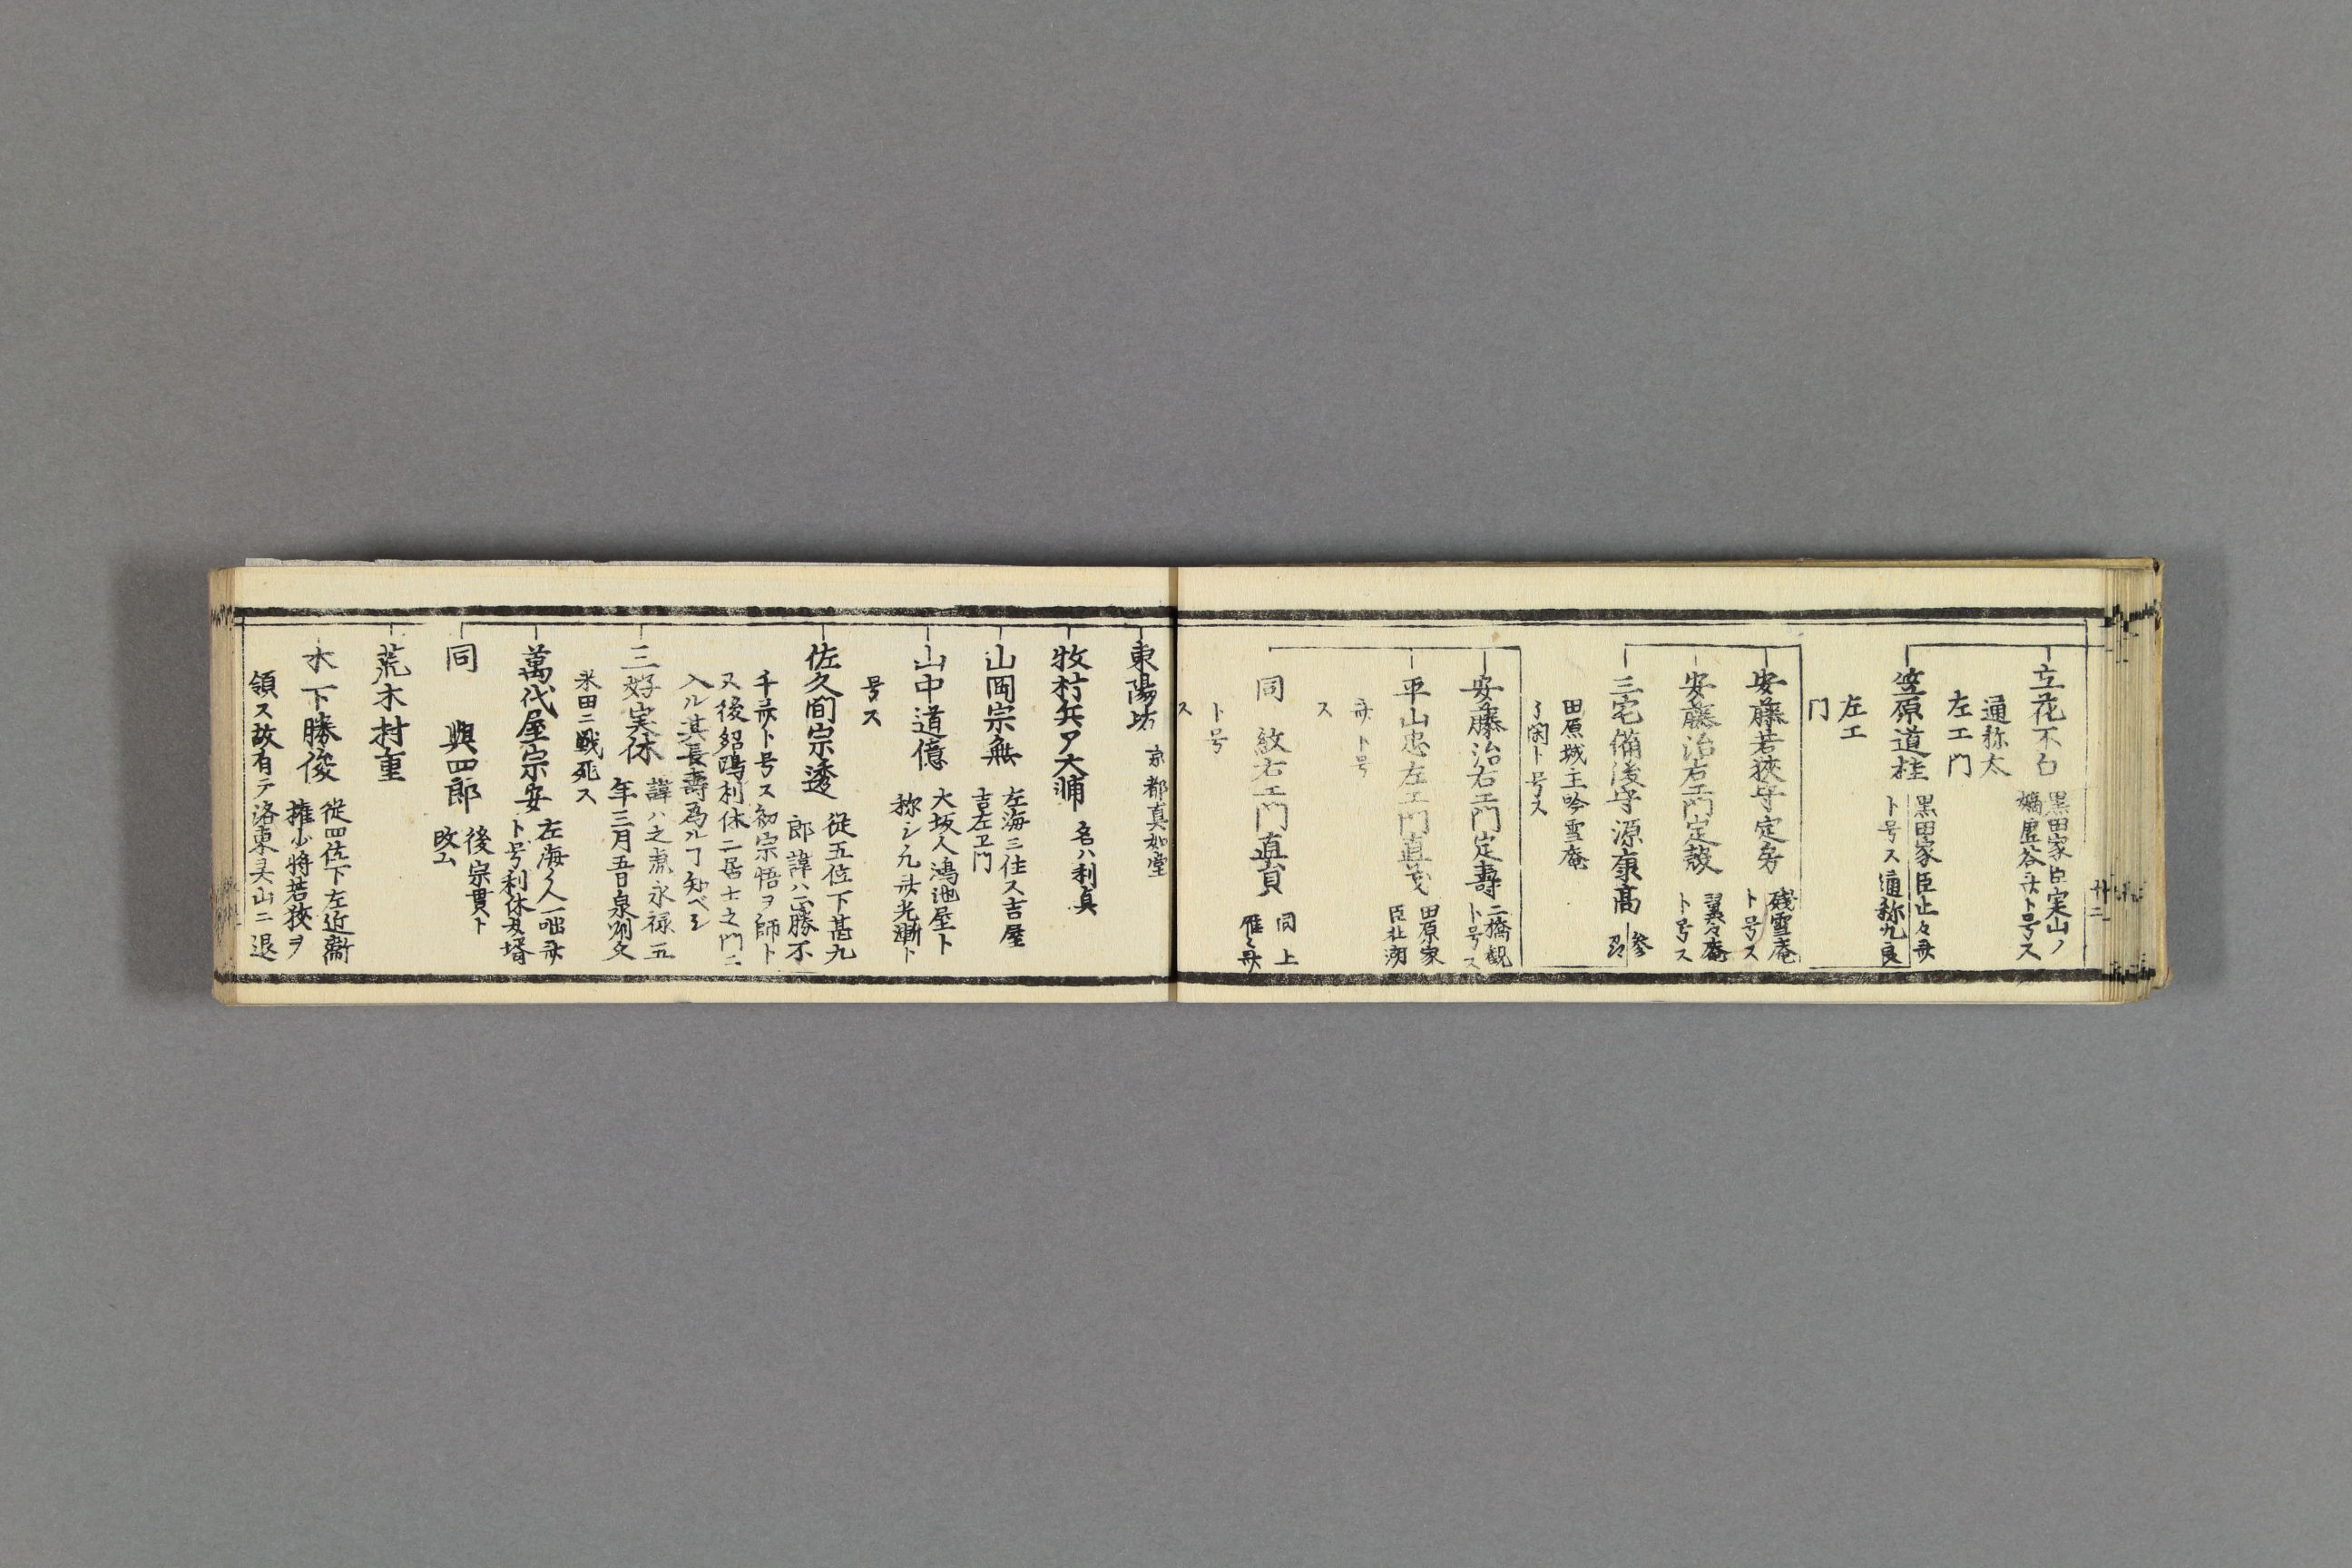 立花不白
黒田家臣実山ノ
嫡虚谷斎ト号ス
通称太
左エ門
笠原道桂
黒田家臣止々斎
ト号ス通称九良
左エ
門
安藤若狭守定房
残雪庵
ト号ス
安藤治右エ門定殻
翼々庵
ト号ス
三宅備後守源康高
参
田原城主吟雪庵
了閑ト号ス
安藤治右エ門定壽
二橋観
ト号ス
平山忠左エ門直茂
田原家
臣
斎ト号
ス
同 紋右エ門直貞
同上
雁々斎
ト号
ス
廿二
東陽坊
京都真如堂
牧村兵ア大輔
名ハ利貞
山岡宗無
左海三住ス吉屋
吉左卫門
山中道億
大坂人鴻池屋ト
称シ九斎光漸ト
号ス
佐久間宗透
従五位下甚九
郎諱ハ正勝不
千斎ト号ス初宗悟ヲ師ト
又後紹鴎利休二居士之門ニ
入ル其長壽為ルヿ知ベシ
三好実休
諱ハ之虎永禄五
年三月五日泉州久
米田ニ戦死ス
萬代屋宗安
左海ノ人一咄斎
ト号利休女壻
同 與四郎
後宗貫ト
改ム
荒木村重
木下勝俊
従四位下左近衛
権少将若狭ヲ
領ス故有テ洛東灵山ニ退